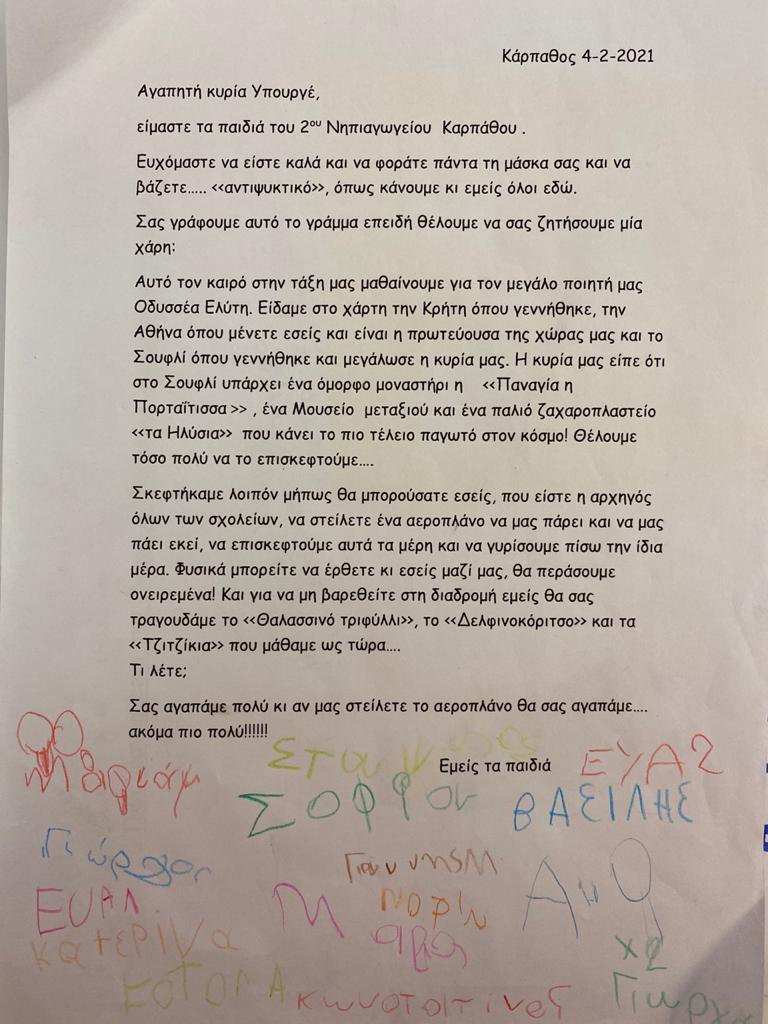 Κάρπαθος 4-2-2021
Αγαπητή κυρία Υπουργέ,
είμαστε τα παιδιά του 2ου Νηπιαγωγείου Καρπάθου .
Ευχόμαστε να είστε καλά και να φοράτε πάντα τη μάσκα σας και να
βάζετε..... <<αντιψυκτικό>>, όπως κάνουμε κι εμείς όλοι εδώ.
Σας γράφουμε αυτό το γράμμα επειδή θέλουμε να σας ζητήσουμε μία
χάρη:
Αυτό τον καιρό στην τάξη μας μαθαίνουμε για τον μεγάλο ποιητή μας
Οδυσσέα Ελύτη. Είδαμε στο χάρτη την Κρήτη όπου γεννήθηκε, την
Αθήνα όπου μένετε εσείς και είναι η πρωτεύουσα της χώρας μας και το
Σουφλί όπου γεννήθηκε και μεγάλωσε η κυρία μας. Η κυρία μας είπε ότι
στο Σουφλί υπάρχει ένα όμορφο μοναστήρι η <<Παναγία η
Πορταΐτισσα>> , ένα Μουσείο μεταξιού και ένα παλιό ζαχαροπλαστείο
<<τα Ηλύσια>> που κάνει το πιο τέλειο παγωτό στον κόσμο! Θέλουμε
τόσο πολύ να το επισκεφτούμε....
Σκεφτήκαμε λοιπόν μήπως θα μπορούσατε εσείς, που είστε η αρχηγός
όλων των σχολείων, να στείλετε ένα αεροπλάνο να μας πάρει και να μας
πάει εκεί, να επισκεφτούμε αυτά τα μέρη και να γυρίσουμε πίσω την ίδια
μέρα. Φυσικά μπορείτε να έρθετε κι εσείς μαζί μας, θα περάσουμε
ονειρεμένα! Και για να μη βαρεθείτε στη διαδρομή εμείς θα σας
τραγουδάμε το <<Θαλασσινό τριφύλλι>>, το <<Δελφινοκόριτσο>> και τα
<<Τζιτζίκια>> που μάθαμε ως τώρα....
Τι λέτε;
Σας αγαπάμε πολύ κι αν μας στείλετε το αεροπλάνο θα σας αγαπάμε....
ακόμα πιο πολύ!!!!!!
Εμείς τα παιδιά
ΒΑΣΙΛΗΣ
Γιώργος
ΚΑΤΕΡΙΝΑ